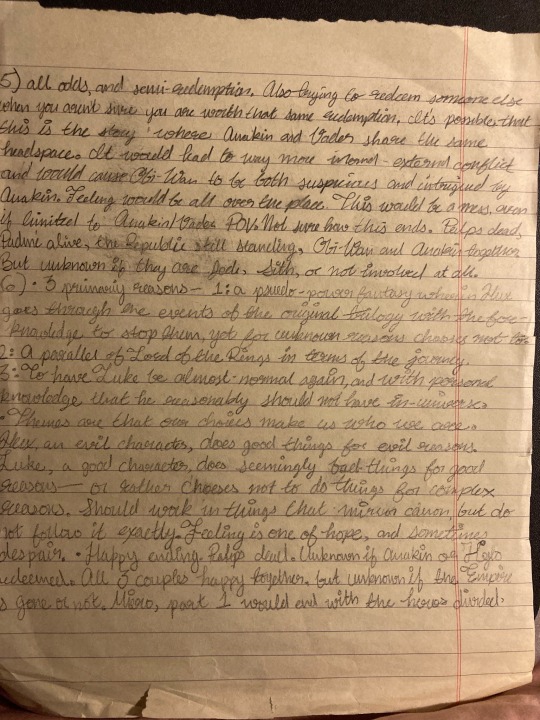 5) all odds, and semi-redemption. Also trying to redeem someone else
when you aren't sure you are worth that same redemption. It's possible that
this is the story where Anakin and Vader share the same
headspace. It would lead to way more internal-external conflict
and would cause Obi-Wan to be both suspicious and intrigued by
Anakin. Feeling would be all over the place. This would be a mess, even
if limited to Anakin/Vader POV. Not sure how this ends. Palps dead,
Padmé alive, the Republic still standing, Obi-Wan and Anakin together
But unknown if they are Jedi, Sith, or not involved at all.
6) • 3 primary reasons— 1: a pseudo-power fantasy wherein
goes through the events of the original trilogy with the fore-
knowledge to stop them, yet for unknown reasons chooses not to.
2: A parallel of Lord of the Rings in terms of the journey.
3: To have Luke be almost-normal again, and with personal
knowledge that he reasonably should not have in-universe.
• Themes are that our choices make us who we are.
an evil character, does good things for evil reasons.
Luke, a good character, does seemingly bad things for good
reasons— or rather chooses not to do things for complex
reasons. Should work in things that mirror canon but do
not follow it exactly. Feeling is one of hope, and sometimes
despair. • Happy ending. Palps dead. Unknown if Anakin or
redeemed. All 3 couples happy together. but unknown if the Empire
is gone or not. part 1 would end with the heros divided.